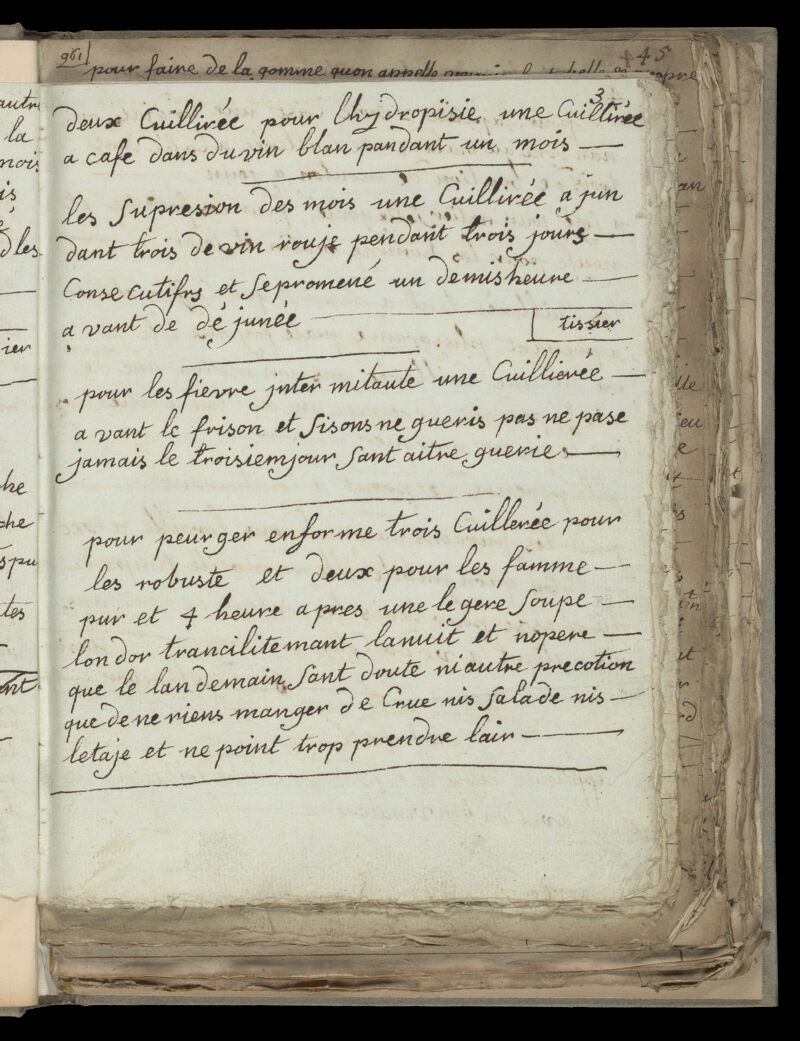 961
45
pour faire de la gomme quon appelle
3
deux Cuillirée pour lhydropisie une Cuillirée
a cafe dans du vin blan pandant un mois —
les Supresion des mois une Cuillirée a jun
dant trois de vin rouje pendant trois jours —
Conse cutifrs et Sepromené un demis heure —
a vant de dé junée —
tissier
pour les fievre jnter mitaute une Cuillierée —
a vant le frison et Sisonsne gueris pas ne pase
jamais le troisiemjour Sant aitre guerie —
pour peurger enforme trois Cuillerée pour
les robuste et deux pour les famme —
pur et 4 heure apres une le gere Soupe —
lon dor trancilitemant lanuit et nopere —
que le landemain Sant doute ni autre precotion
que de ne riens manger de Crue nis Salade nis —
letaje et ne point trop prendre lair —